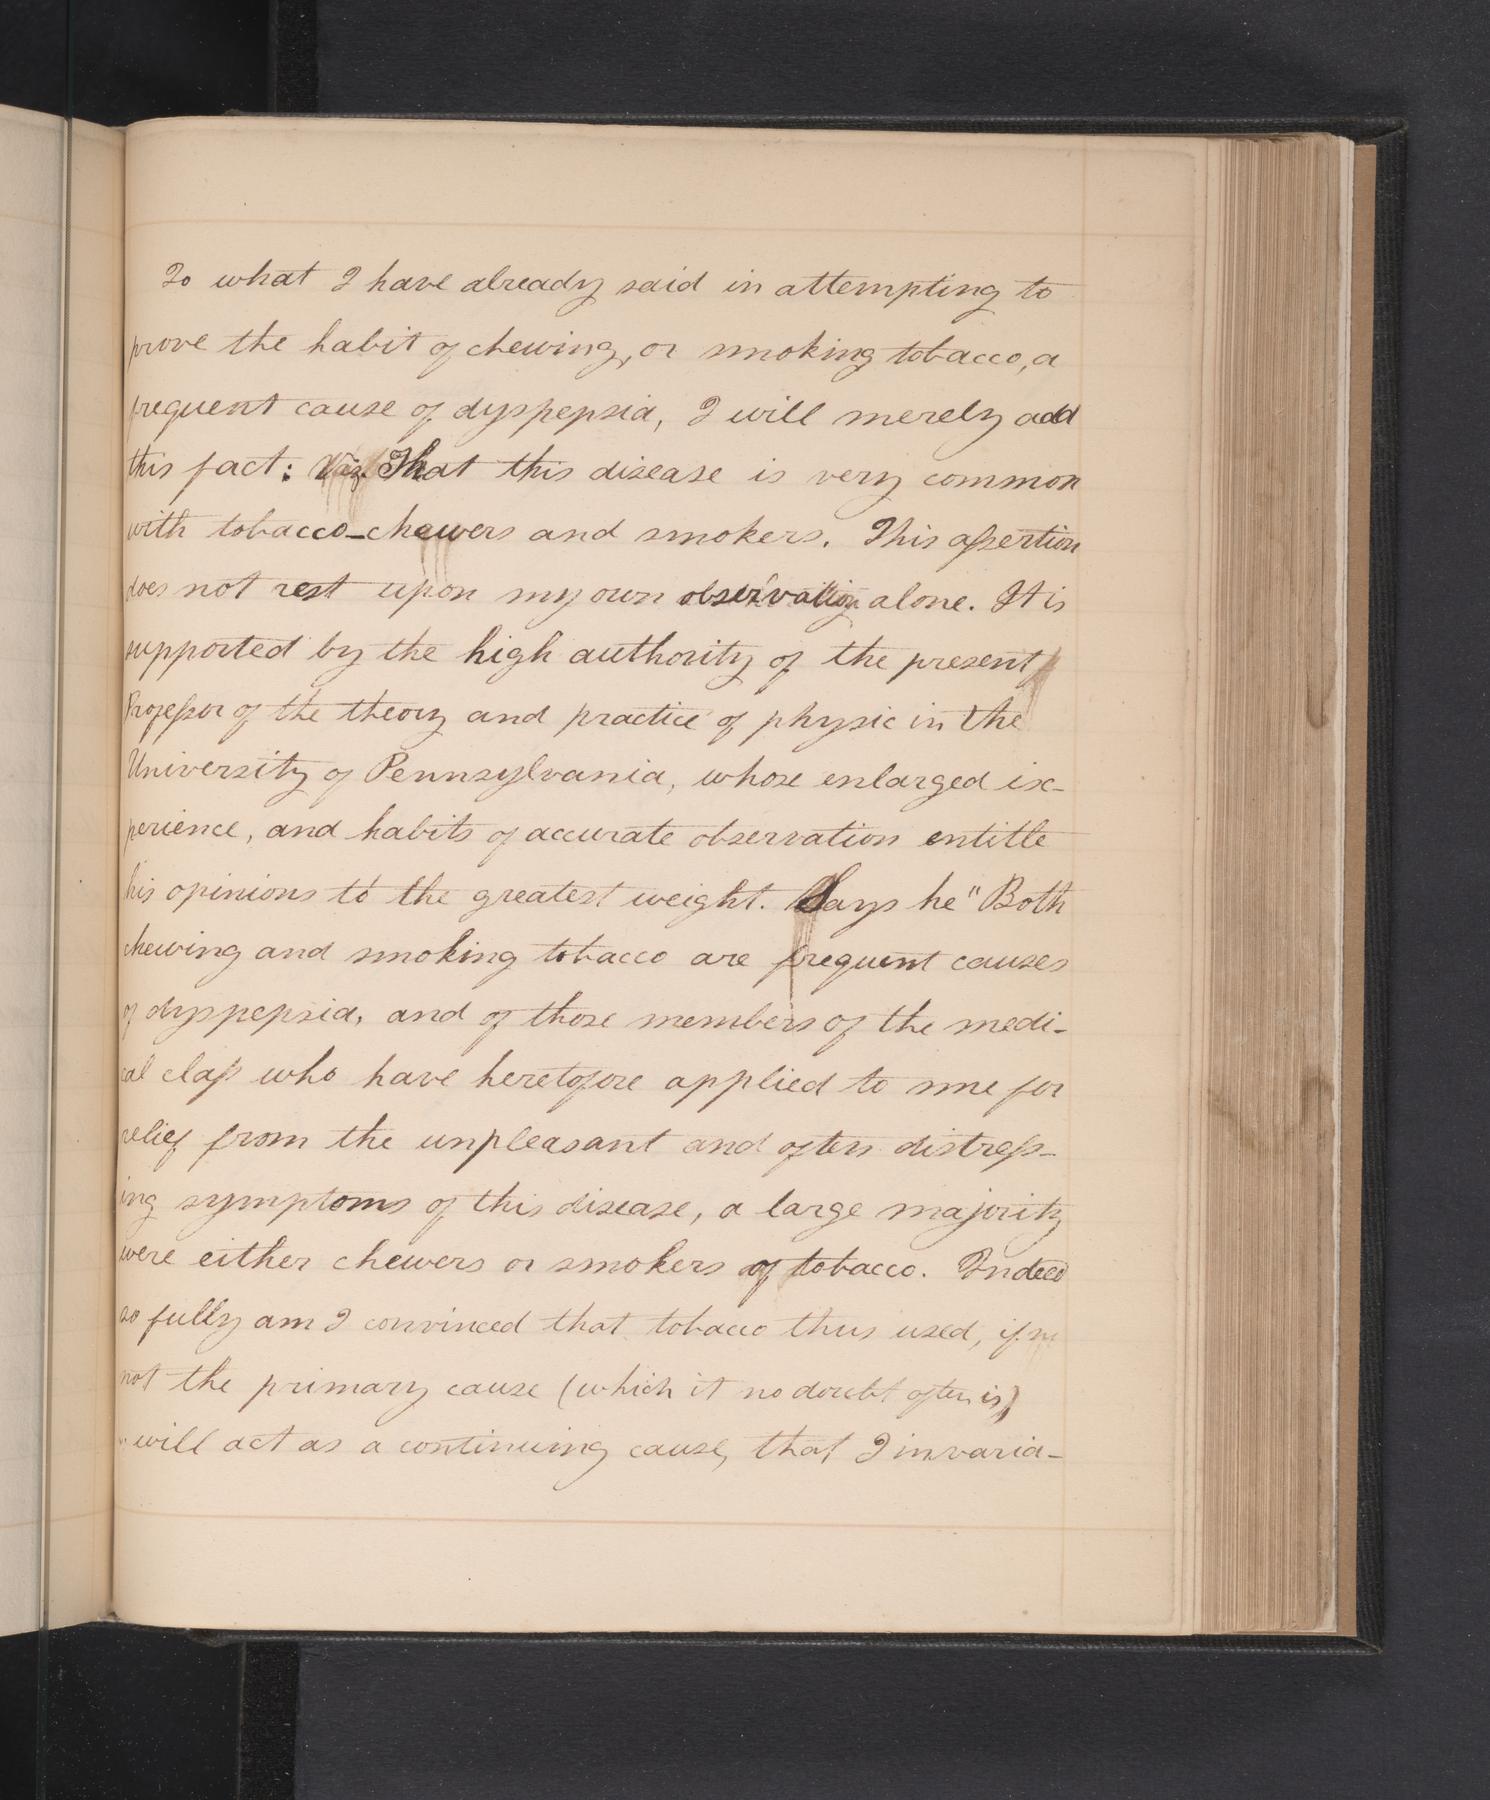 To what I have already said in attempting to
prove the habit of chewing, or smoking tobacco, a
frequent cause of dyspepsia, I will merely add
this fact: Viz. That this disease is very common
with tobacco-chewers and smokers. This aſsertion
does not rest upon my own observation alone. It is
supported by the high authority of the present
Profeſsor of the theory and practice of physic in the
University of Pennsylvania, whose enlarged ex-
perience, and habits of accurate observation entitle
his opinions to the greatest weight. Says he "Both
chewing and smoking tobacco are frequent causes
of dyspepsia, and of those members of the medi-
cal claſs who have heretofore applied to me for
relief from the unpleasant and often distreſs-
ing symptoms of this disease, a large majority
were either chewers or smokers of tobacco. Indeed
so fully am I convinced that tobacco thus used, if
not the primary cause (which it no doubt often is)
will act as a continuing cause, that I invaria-